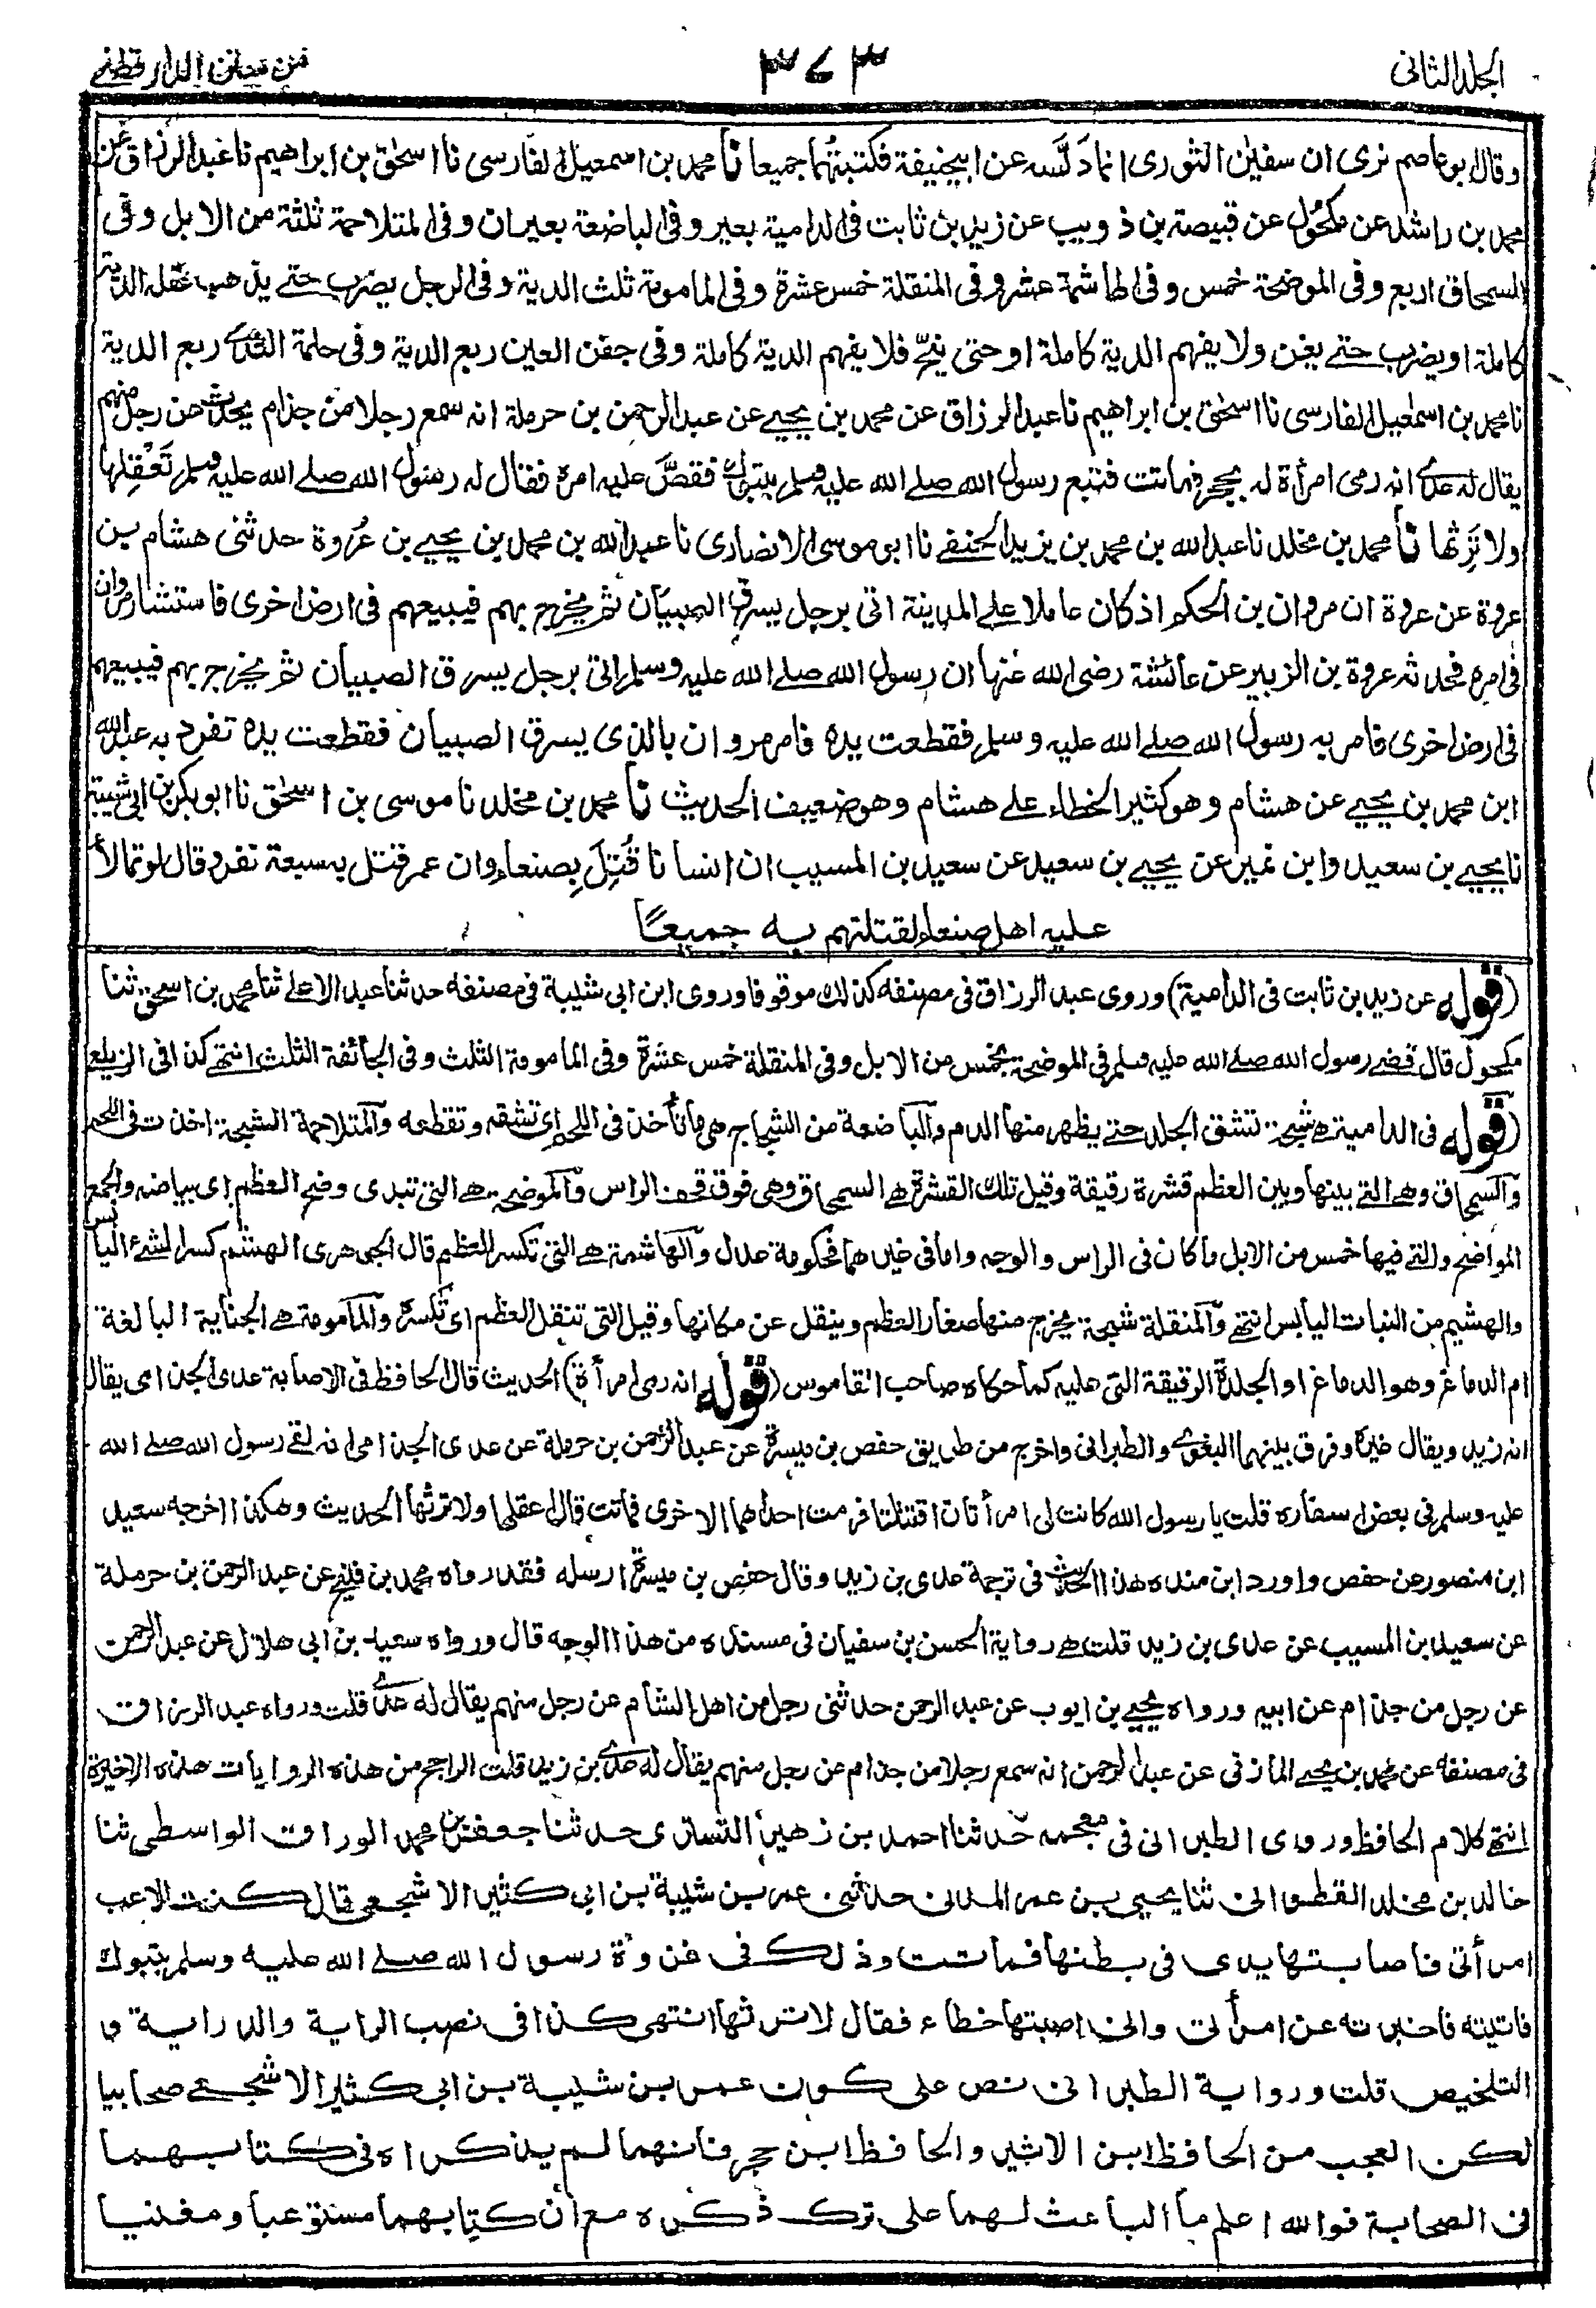 الجلد الثانى
٣٧٣
من سنن الدارقطنے
وقال ابو عاصم نرى ان سفيٰن الثورى انما دَلَّسَه عن ابيحنيفة فكتبتُهما جميعا نا محمد بن اسمٰعيل الفارسى نا اسحٰق بن ابراهيم نا عبد الرزاق عن
محمد بن راشد عن مكحول عن قبيصة بن ذويب عن زيد بن ثابت فى الدامية بعير وفى الباضعة بعيران وفى المتلاحمة ثلثة من الابل وفى
السمحاق اربع وفى الموضحة خمس وفى الهاشمة عشر وفى المنقلة خمس عشرة وفى المامومة ثلث الدية وفى الرجل يضرب حتے يذهب عقله الدية
كاملة او يضرب حتے يغن ولا يفهم الدية كاملة او حتى يبحّ فلا يفهم الدية كاملة وفى جفن العين ربع الدية وفى حلمة الثدے ربع الدية
نا محمد بن اسمٰعيل الفارسى نا اسحٰق بن ابراهيم نا عبد الرزاق عن محمد بن يحيے عن عبد الرحمن بن حرملة انه سمع رجلا من جذام يحدث عن رجل منهم
يقال له عدے انه رمى امرأة له بحجر فماتت فتبع رسول الله صلے الله عليه وسلم بتبوك فقصَّ عليه امره فقال له رسول الله صلے الله عليه وسلم تَعْقِلها
ولا تَرِثها نا محمد بن مخلد نا عبد الله بن محمد بن يزيد الحنفے نا ابو موسى الانصارى نا عبد الله بن محمد بن يحيے بن عُروة حدثنى هشام بن
عروة عن عروة ان مروان بن الحكم اذ كان عاملا علے المدينة اتى برجل يسرق الصبيان ثم يخرج بهم فيبيعهم فى ارض اخرى فاستشار مروان
فى امره فحدثه عروة بن الزبير عن عائشة رضى الله عنها ان رسول الله صلے الله عليه وسلم اتى برجل يسرق الصبيان ثم يخرج بهم فيبيعهم
فى ارض اخرى فامر به رسول الله صلے الله عليه وسلم فقطعت يده فامر مروان بالذى يسرق الصبيان فقطعت يده تفرد به عبد الله
ابن محمد بن يحيے عن هشام وهو كثير الخطاء علے هشام وهو ضعيف الحديث نا محمد بن مخلد نا موسى بن اسحٰق نا ابو بكر بن ابى شيبة
نا يحيے بن سعيد وابن نمير عن يحيے بن سعيد عن سعيد بن المسيب ان انسانا قُتِلَ بِصنعاء وان عمر قتل به سبعة نفر وقال لو تمالأ
عليه اهل صنعاء لقتلتهم به جميعًا
(قوله عن زيد بن ثابت فى الدامية) وروى عبد الرزاق فى مصنفه كذلك موقوفا وروى ابن ابى شيبة فى مصنفه حدثنا عبد الاعلے ثنا محمد بن اسحق ثنا
مكحول قال قضے رسول الله صلے الله عليه وسلم فى الموضحة بخمس من الابل وفى المنقلة خمس عشرة وفى المامومة الثلث وفى الجائفة الثلث انتهے كذا فى الزيلعے
(قوله فى الدامية) هے شجة تشق الجلد حتے يظهر منها الدم والباضعة من الشجاج هى ما تأخذ فى اللحم اى تشقه وتقطعه والمتلاحمة الشجة اخذت فى اللحم
والسمحاق وهے التے بينها وبين العظم قشرة رقيقة وقيل تلك القشرة هے السمحاق وهى فوق قحف الراس والموضحة هے التى تبدى وضح العظم اى بياضه والجمع
المواضح والتے فيها خمس من الابل ما كان فى الراس والوجه واما فى غيرهما فحكومة عدل والهاشمة هے التى تكسر العظم قال الجوهرى الهشم كسر الشئ اليابس
والهشيم من النبات اليابس انتهے والمنقلة شجة يخرج منها صغار العظم وينقل عن مكانها وقيل التى تنقل العظم اى تكسره والمامومة هے الجناية البالغة
ام الدماغ وهو الدماغ او الجلدة الرقيقة التى عليه كما حكاه صاحب القاموس (قوله انه رمى امرأة) الحديث قال الحافظ فى الاصابة عدى الجذامى يقال
انه زيد ويقال غيره وفرق بينهما البغوے والطبرانى واخرج من طريق حفص بن ميسرة عن عبد الرحمن بن حرملة عن عدى الجذامى انه لقے رسول الله صلے الله
عليه وسلم فى بعض اسفاره قلت يا رسول الله كانت لى امرأتان اقتتلتا فرمت احداهما الاخرى فماتت قال اعقلها ولا ترثها الحديث وهكذا اخرجه سعيد
ابن منصور عن حفص واورد ابن منده هذا الحديث فى ترجمة عدى بن زيد وقال حفص بن ميسرة ارسله فقد رواه محمد بن فليح عن عبد الرحمن بن حرملة
عن سعيد بن المسيب عن عدى بن زيد قلت هے رواية الحسن بن سفيان فى مسنده من هذا الوجه قال ورواه سعيد بن ابى هلال عن عبد الرحمن
عن رجل من جذام عن ابيه ورواه يحيے بن ايوب عن عبد الرحمن حدثنى رجل من اهل الشام عن رجل منهم يقال له عدے قلت ورواه عبد الرزاق
فى مصنفه عن محمد بن يحيے المازنى عن عبد الرحمن انه سمع رجلا من جذام عن رجل منهم يقال له عدے بن زيد قلت الراجح من هذه الروايات هذه الاخيرة
انتهے كلام الحافظ وروى الطبرانى فى معجمه حدثنا احمد بن زهير التسترى حدثنا جعفر بن محمد الوراق الواسطى ثنا
خالد بن مخلد القطوانى ثنا يحيى بن عمر المدنى حدثنى عمر بن شيبة بن ابى كثير الاشجعى قال كنت الاعب
امرأتى فاصابتها يدى فى بطنها فماتت وذلك فى غزوة رسول الله صلے الله عليه وسلم بتبوك
فاتيته فاخبرته عن امرأتى وانى اصبتها خطاء فقال لا ترثها انتهى كذا فى نصب الراية والدراية و
التلخيص قلت ورواية الطبرانى نص على كون عمر بن شيبة بن ابى كثير الاشجعے صحابيا
لكن العجب من الحافظ ابن الاثير والحافظ ابن حجر فانهما لم يذكراه فى كتابيهما
فى الصحابة فوالله اعلم ما الباعث لهما على ترك ذكره مع ان كتابهما مستوعبا ومغنيا